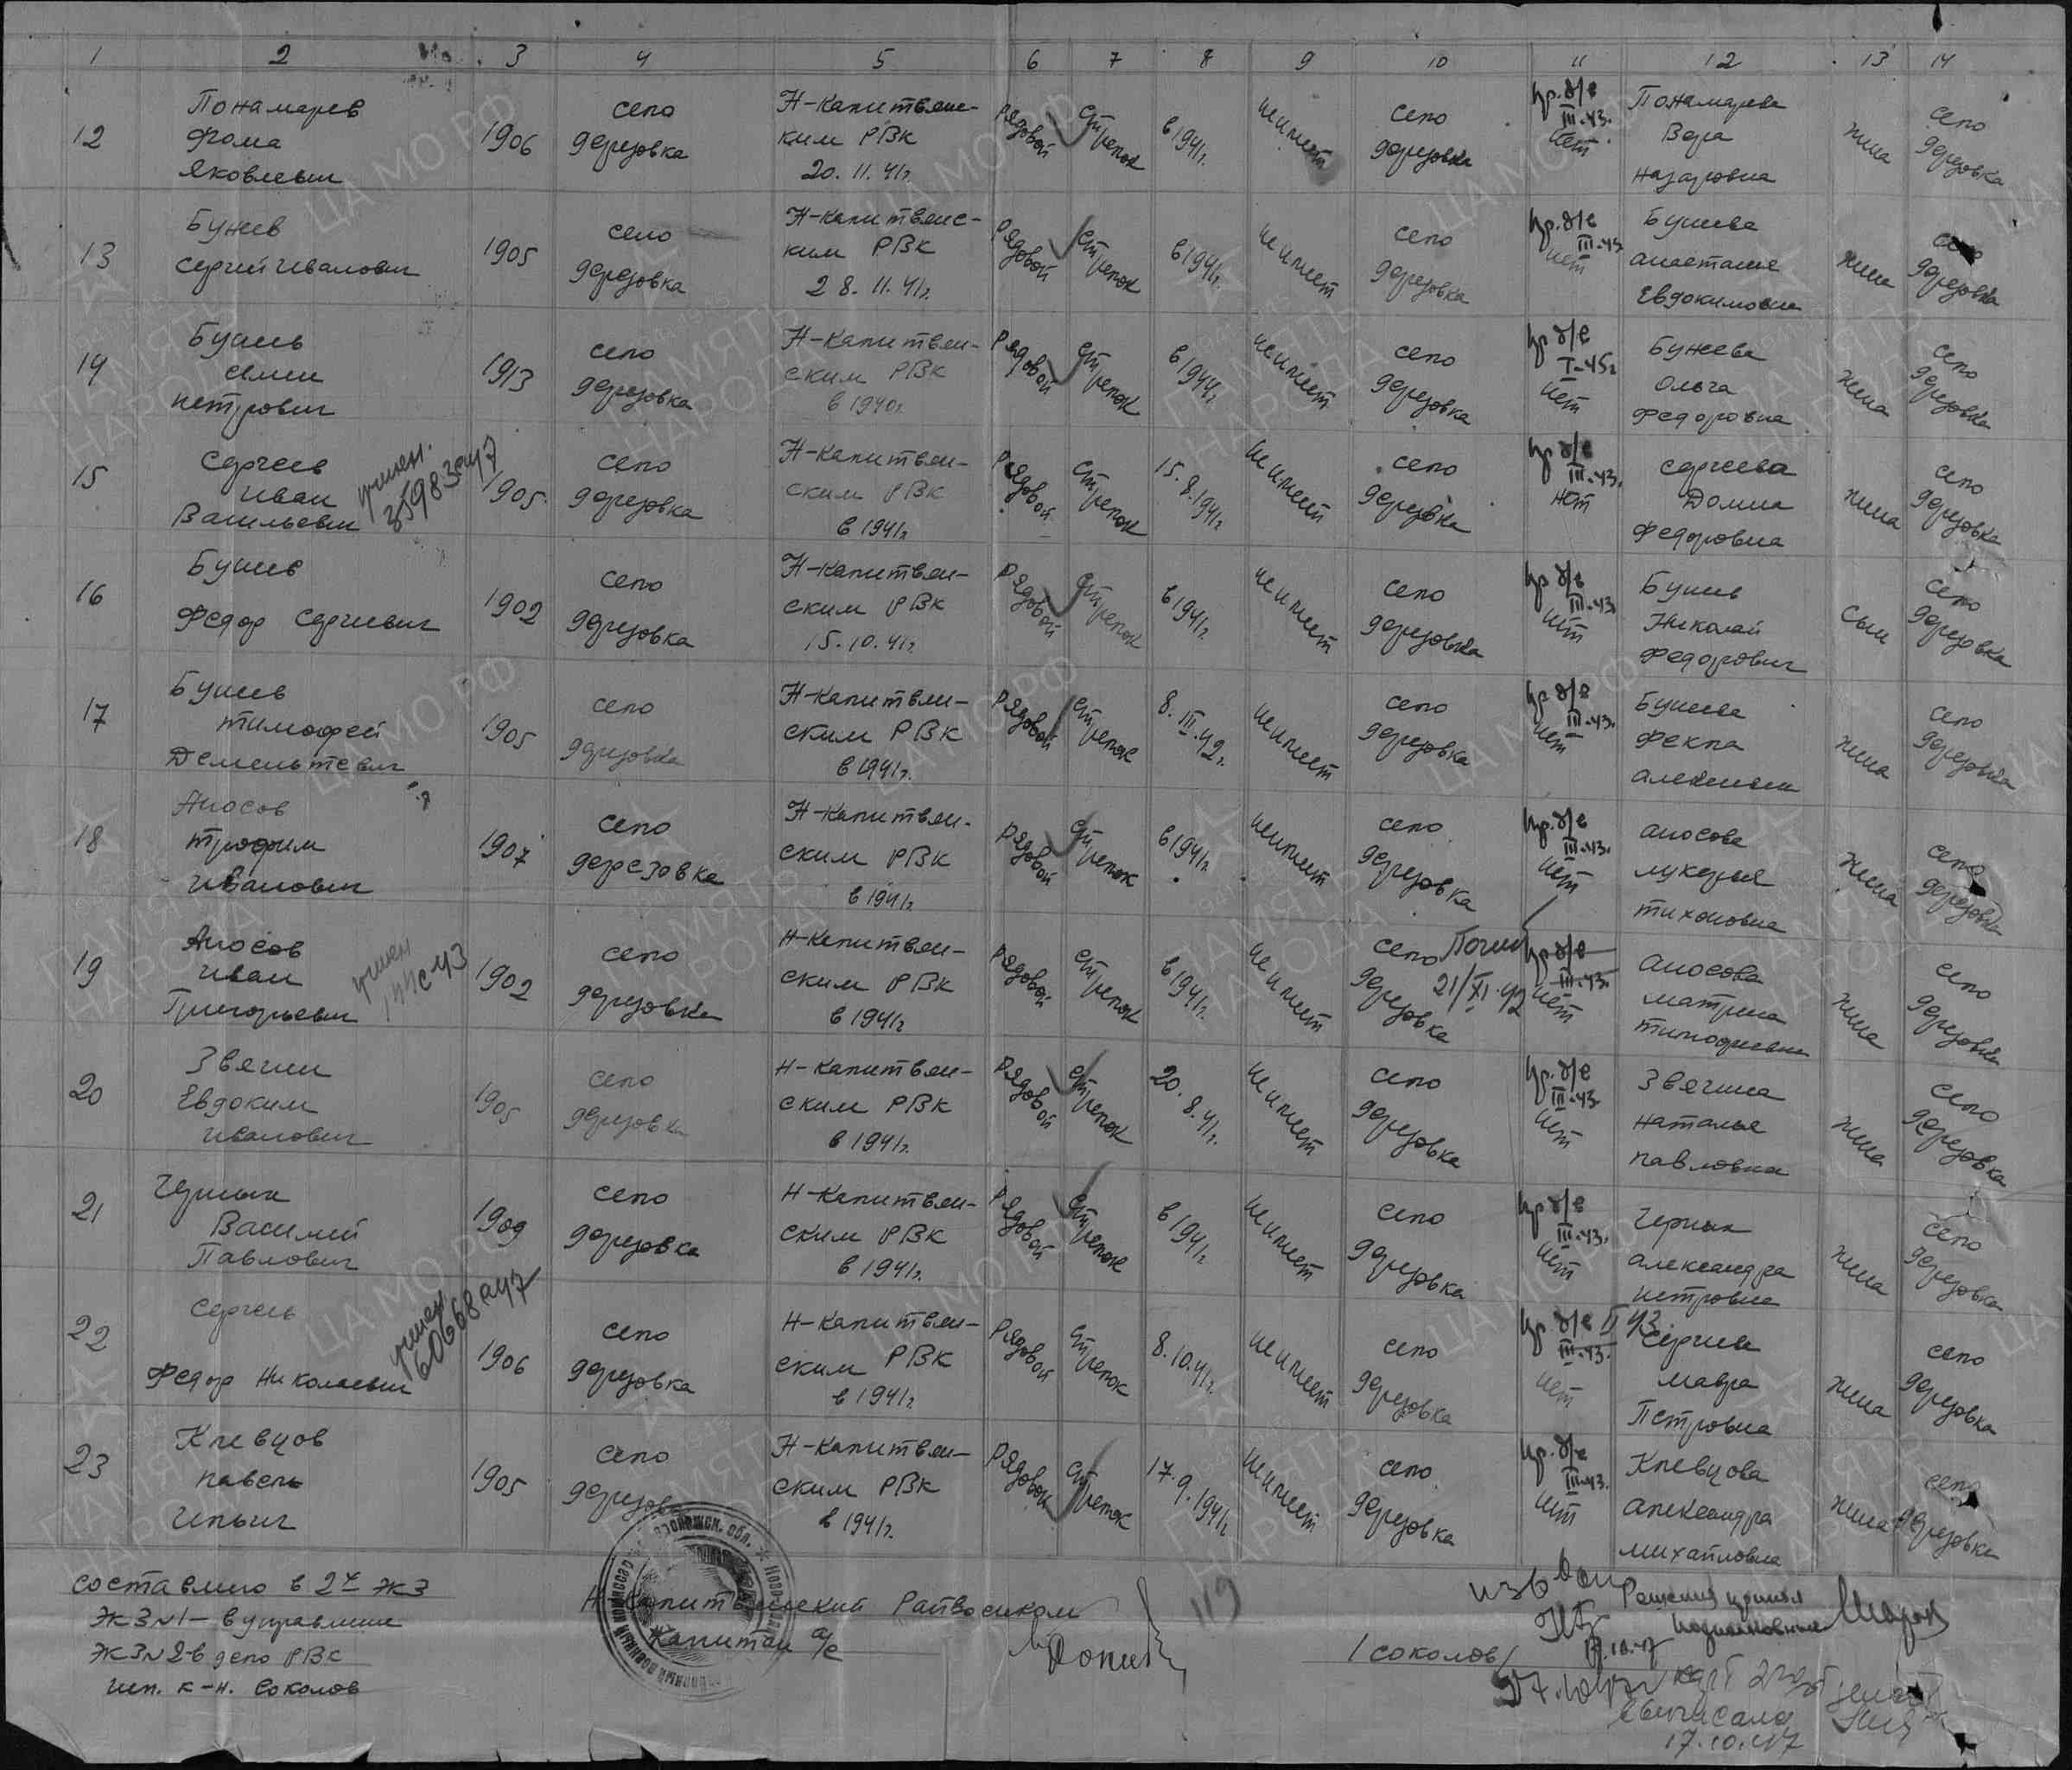 1 2 3 4 5 6 7 8 9 10 11 12 13 14
12 Понамарев Фома Яковлевич 1906 село Дерезовка Н-Калитвянским РВК 20.11.41г. Рядовой стрелок в 1941г. не имеет село Дерезовка пр. б/в III-43. нет Понамарева Вера Назаровна жена село Дерезовка
13 Бунев Сергей Иванович 1905 село Дерезовка Н-Калитвянским РВК 28.11.41г. Рядовой стрелок в 1941г. не имеет село Дерезовка пр. б/в III-43 нет Бунева Анастасия Евдокимовна жена село Дерезовка
14 Бунев Семен Петрович 1913 село Дерезовка Н-Калитвянским РВК в 1940г. Рядовой стрелок в 1944г. не имеет село Дерезовка пр б/в I-45г нет Бунева Ольга Федоровна жена село Дерезовка
15 Сергеев Иван Васильевич учтен. 1905 село Дерезовка Н-Калитвянским РВК в 1941г Рядовой стрелок 15.8.1941г. не имеет село Дерезовка пр б/в III-43. нет Сергеева Домна Федоровна жена село Дерезовка
16 Бунев Федор Сергеевич 1902 село Дерезовка Н-Калитвянским РВК 15.10.41г. Рядовой стрелок в 1941г. не имеет село Дерезовка пр б/в III-43 нет Бунев Николай Федорович сын село Дерезовка
17 Бунев Тимофей Дементевич 1905 село Дерезовка Н-Калитвянским РВК в 1941г. Рядовой стрелок 8.III.42г. не имеет село Дерезовка пр б/в III-43. нет Бунева Фекла жена село Дерезовка
18 Аносов Трофим Иванович 1907 село Дерезовка Н-Калитвянским РВК в 1941г. Рядовой стрелок в 1941г. не имеет село Дерезовка пр. б/в III-43. нет Аносова Лукерья Тихоновна жена село Дерезовка
19 Аносов Иван Григорьевич учтен 1902 село Дерезовка Н-Калитвянским РВК в 1941г Рядовой стрелок в 1941г. не имеет село Дерезовка Погиб 21/XI.42 пр б/в III-43. нет Аносова Матрена Тимофеевна жена село Дерезовка
20 Звягин Евдоким Иванович 1905 село Дерезовка Н-Калитвянским РВК в 1941г. Рядовой стрелок 20.8.41г. не имеет село Дерезовка пр. б/в III-43 нет Звягина Наталья Павловна жена село Дерезовка
21 Черных Василий Павлович 1909 село Дерезовка Н-Калитвянским РВК в 1941г. Рядовой стрелок в 1941г не имеет село Дерезовка пр б/в III-43. нет Черных Александра Петровна жена село Дерезовка
22 Сергеев Федор Николаевич учтен 1906 село Дерезовка Н-Калитвянским РВК в 1941г. Рядовой стрелок 8.10.41г. не имеет село Дерезовка пр б/в II 43 III-43. нет Сергеева Мавра Петровна жена село Дерезовка
23 Клевцов Павел Ильич 1905 село Дерезовка Н-Калитвянским РВК в 1941г. Рядовой стрелок 17.9.1941г не имеет село Дерезовка пр. б/в III-43. нет Клевцова Александра Михайловна жена село Дерезовка
составлено в 2х экз
экз №1 - в управление
экз №2 - в дело РВК
исп. к-н. Соколов
Н Калитвянский Райвоенком
Капитан а/с
/Соколов/
119
Решения принял
17.10.47